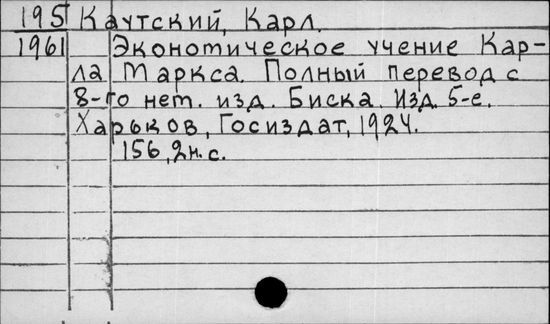 195 Каутский, Карл.
1961 Экономическое учение Кар-
ла Маркса. Полный перевод с
8-го нем. изд. Биска. Изд. 5-е.
Харьков, Госиздат, 1924.
156, 2н. с.